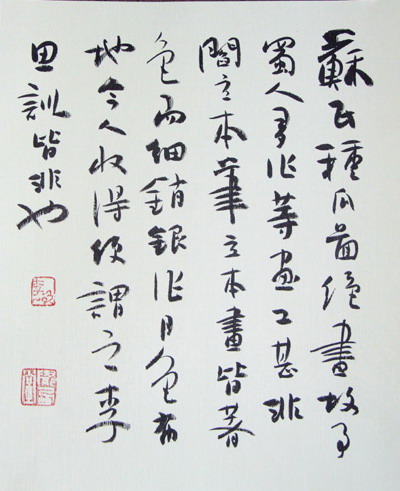 蘇氏種瓜圖絕畫故事
蜀人多作等畫工甚非
閻立本筆立本畫皆著
色而細銷銀作月色布
地今人收得便謂之李
思訓皆非也